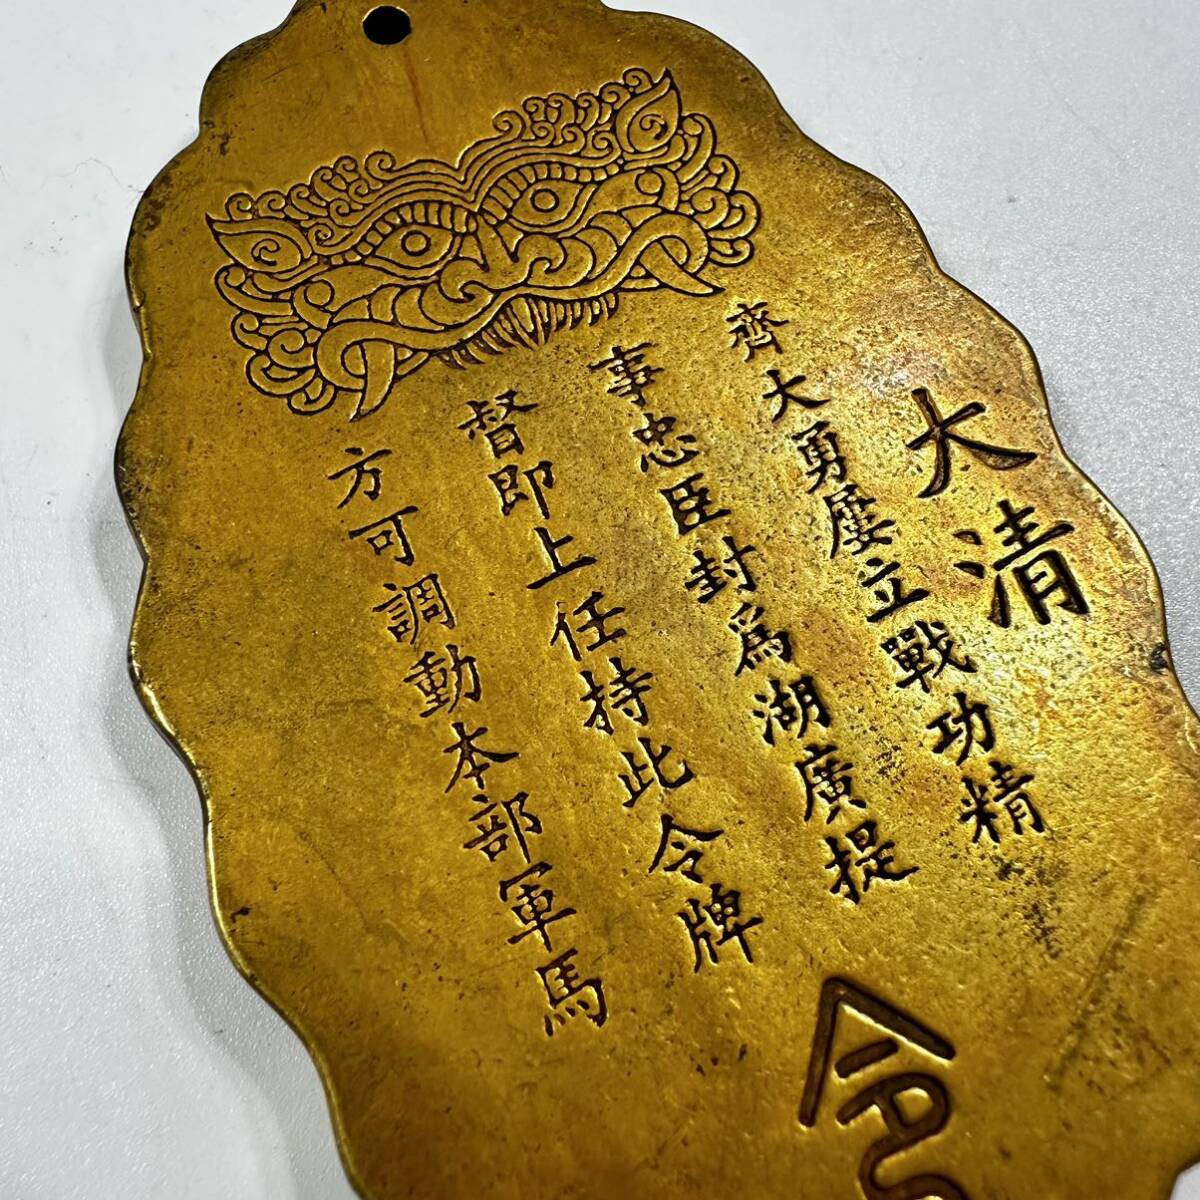 大清
齊大勇屢立戰功精
事忠臣封爲湖廣提
督即上任持此令牌
方可調動本部軍馬
令